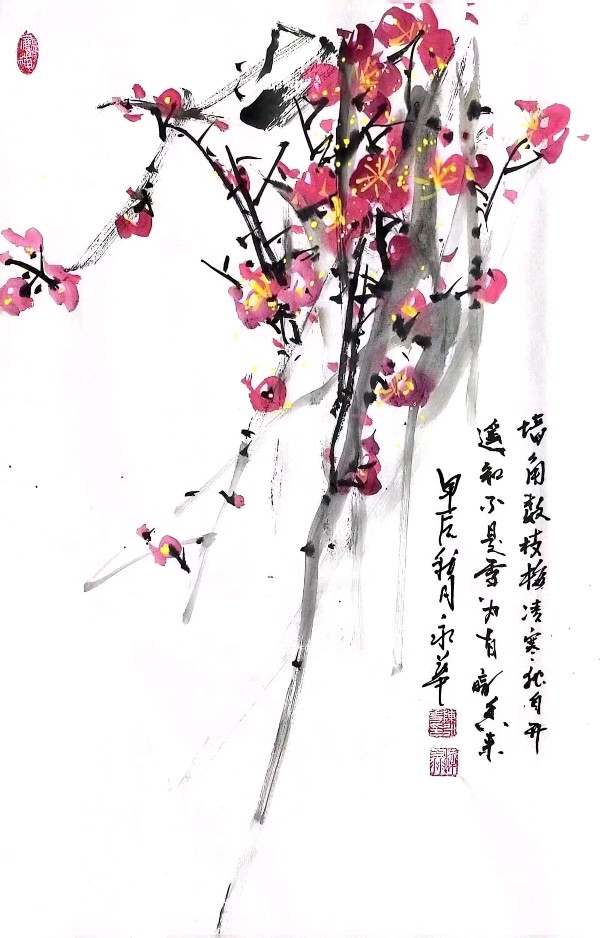 墙角数枝梅凌寒独自开
遥知不是雪为有暗香来
甲辰秋月永华